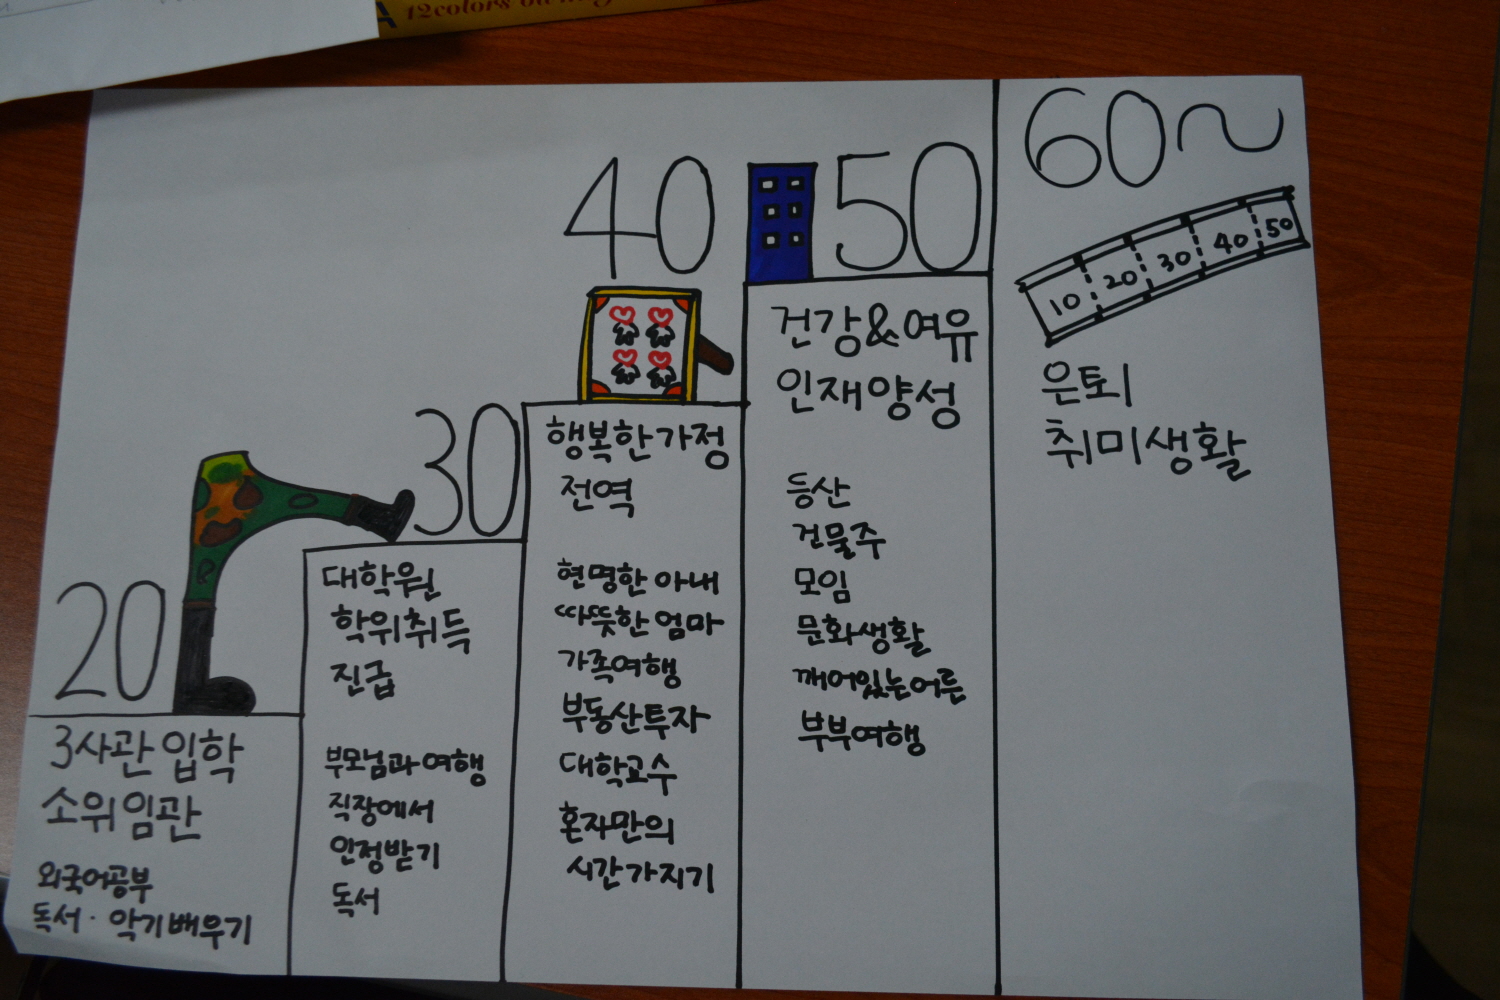 12colors
20
3사관 입학
소위 임관
외국어공부
독서 · 악기 배우기
30
대학원
학위취득
진급
부모님과 여행
직장에서
인정받기
독서
40
행복한 가정
전역
현명한 아내
따뜻한 엄마
가족여행
부동산투자
대학교수
혼자만의
시간 가지기
50
건강&여유
인재양성
등산
건물주
모임
문화생활
깨어있는어른
부부여행
60~
10 20 30 40 50
은퇴
취미생활